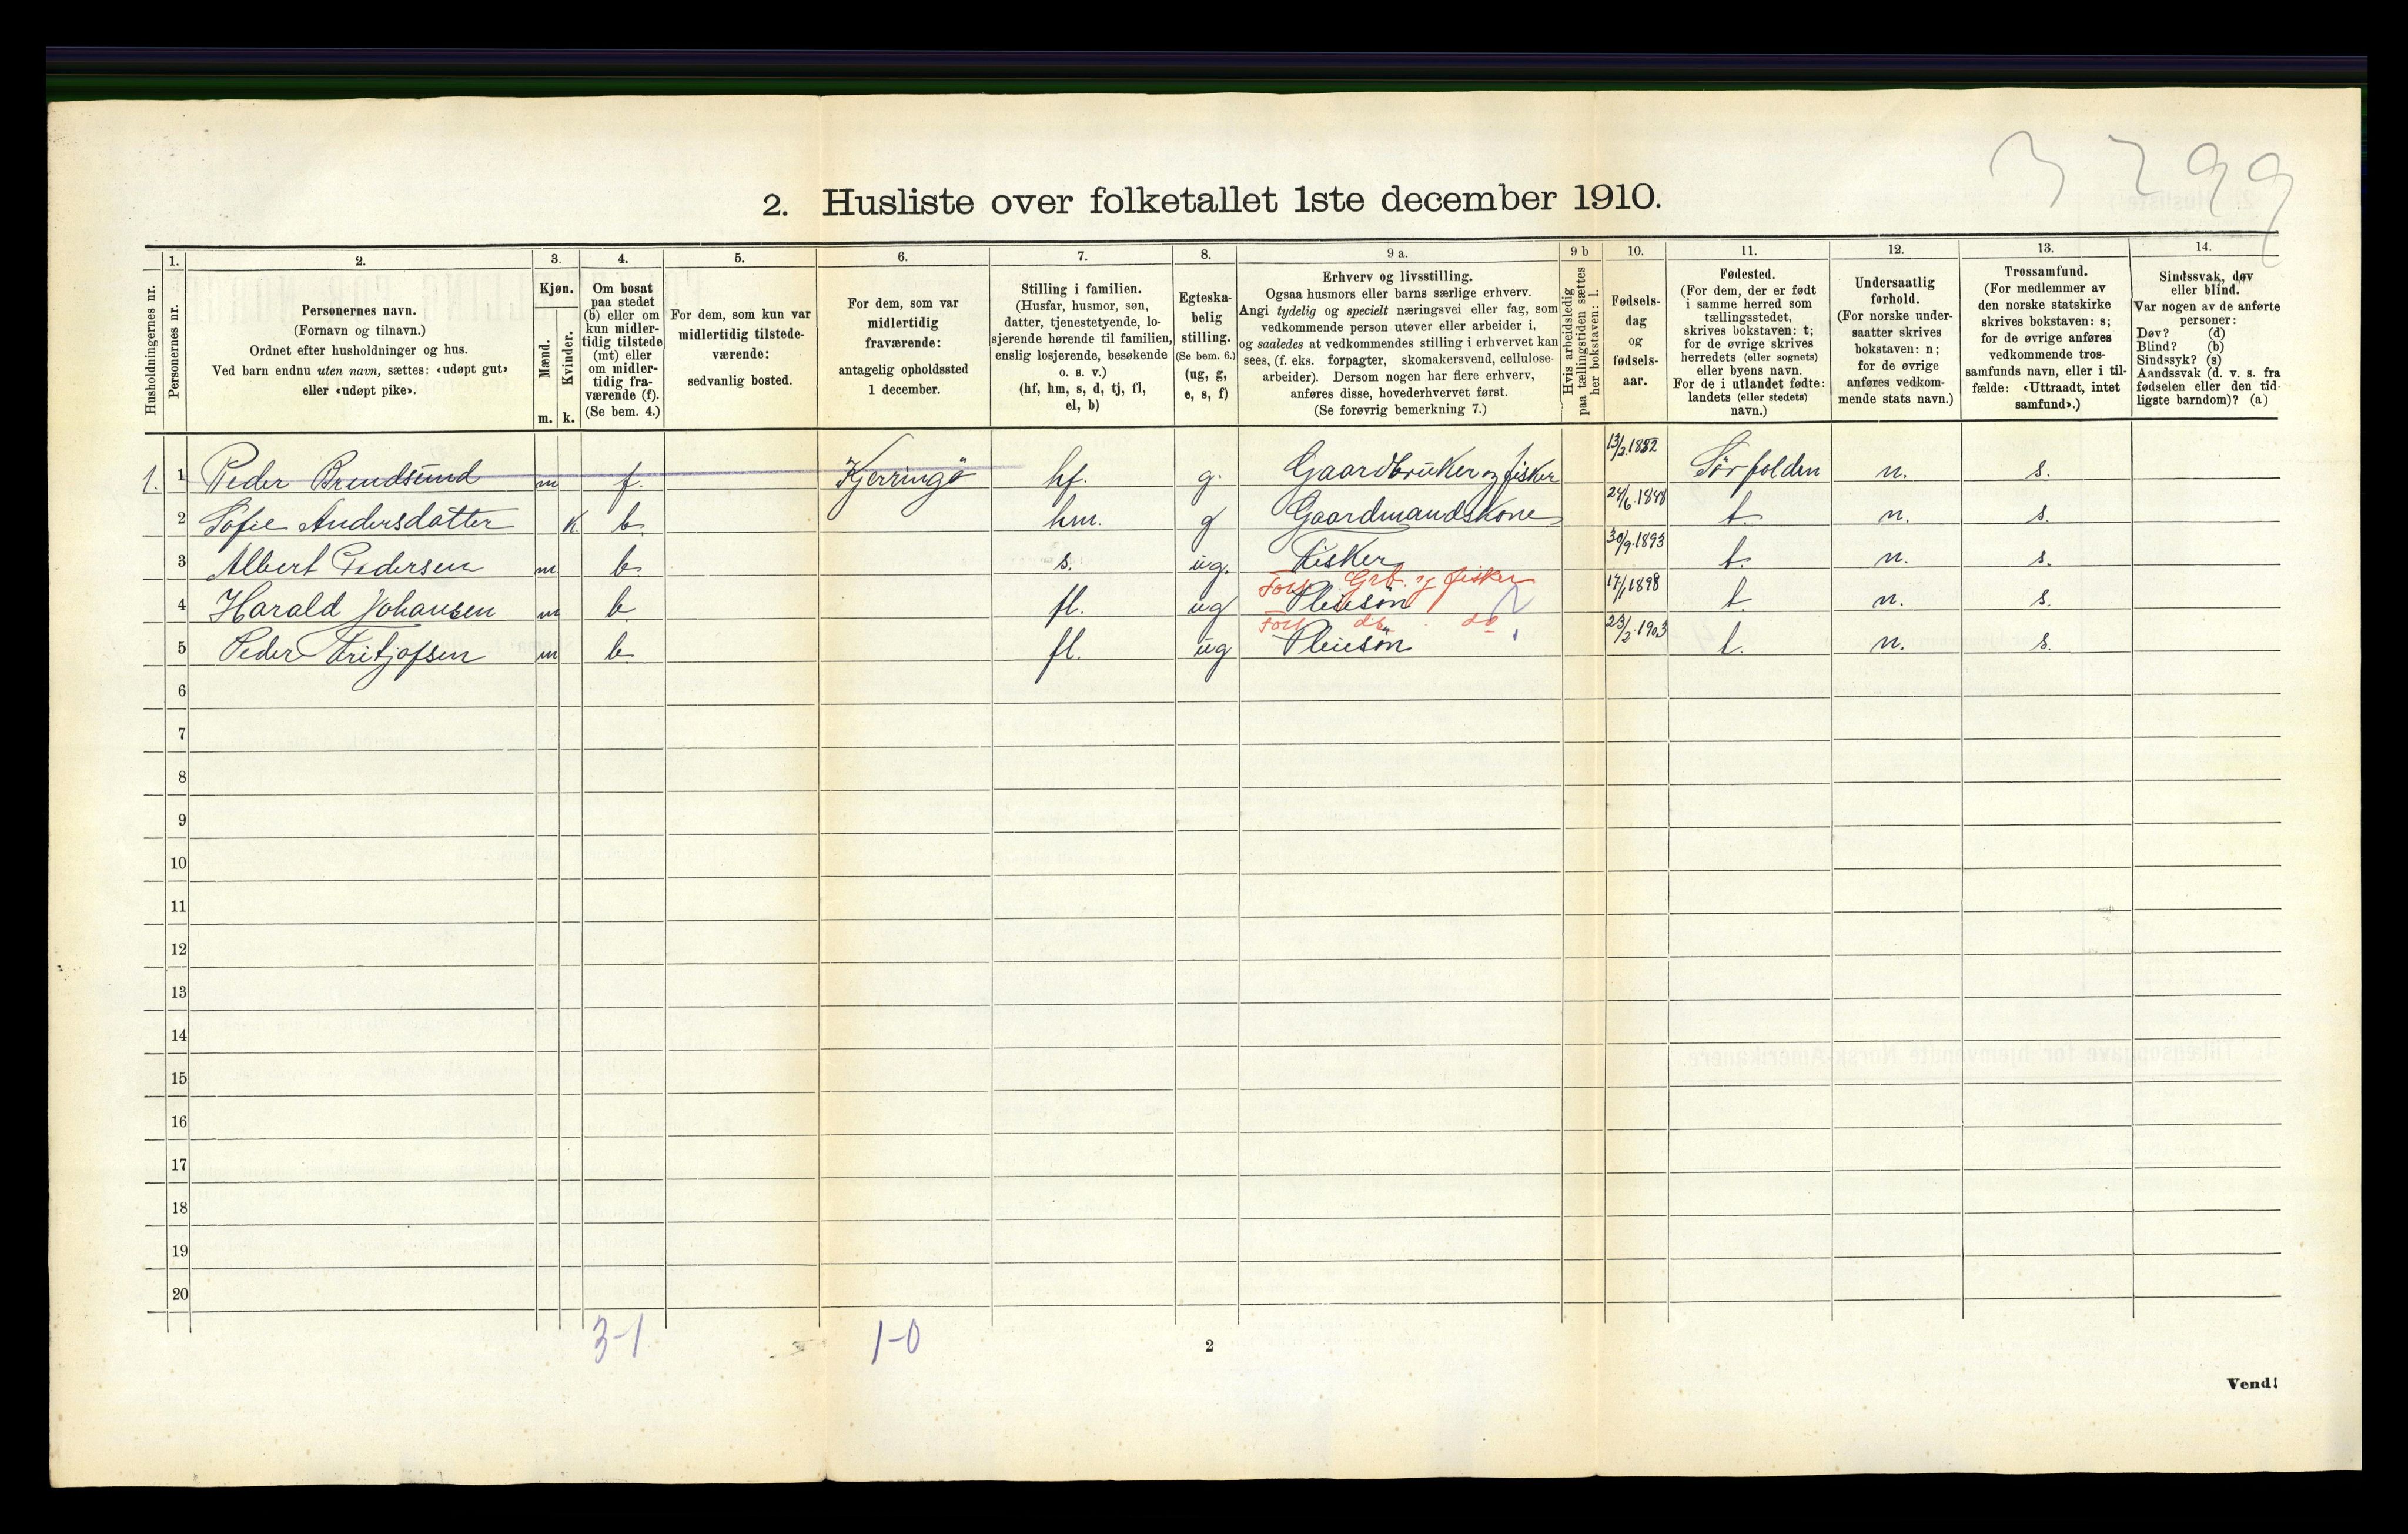 3299
2. Husliste over folketallet 1ste december 1910.
Husholdningernes nr.
1.
Personernes nr.
2.
Personernes navn.
(Fornavn og tilnavn.)
Ordnet efter husholdninger og hus.
Ved barn endnu uten navn, sættes: «udøpt gut»
eller «udøpt pike».
3.
Kjøn.
Mænd.
Kvinder.
m. k.
4.
Om bosat
paa stedet
(b) eller om
kun midler-
tidig tilstede
(mt) eller
om midler-
tidig fra-
værende (f).
(Se bem. 4.)
5.
For dem, som kun var
midlertidig tilstede-
værende:
sedvanlig bosted.
6.
For dem, som var
midlertidig
fraværende:
antagelig opholdssted
1 december.
7.
Stilling i familien.
(Husfar, husmor, søn,
datter, tjenestetyende, lo-
sjerende hørende til familien,
enslig losjerende, besøkende
o. s. v.)
(hf, hm, s, d, tj, fl,
el, b)
8.
Egteska-
belig
stilling.
(Se bem. 6.)
(ug, g,
e, s, f)
9 a.
Erhverv og livsstilling.
Ogsaa husmors eller barns særlige erhverv.
Angi tydelig og specielt næringsvei eller fag, som
vedkommende person utøver eller arbeider i,
og saaledes at vedkommendes stilling i erhvervet kan
sees, (f. eks. forpagter, skomakersvend, cellulose-
arbeider). Dersom nogen har flere erhverv,
anføres disse, hovederhvervet først.
(Se forøvrig bemerkning 7.)
9 b
Hvis arbeidsledig
paa tællingstiden sættes
her bokstaven: l.
10.
Fødsels-
dag
og
fødsels-
aar.
11.
Fødested.
(For dem, der er født
i samme herred som
tællingsstedet,
skrives bokstaven: t;
for de øvrige skrives
herredets (eller sognets)
eller byens navn.
For de i utlandet fødte:
landets (eller stedets)
navn.)
12.
Undersaatlig
forhold.
(For norske under-
saatter skrives
bokstaven: n;
for de øvrige
anføres vedkom-
mende stats navn.)
13.
Trossamfund.
(For medlemmer av
den norske statskirke
skrives bokstaven: s;
for de øvrige anføres
vedkommende tros-
samfunds navn, eller i til-
fælde: «Uttraadt, intet
samfund».)
14.
Sindssvak, døv
eller blind.
Var nogen av de anførte
personer:
Døv? (d)
Blind? (b)
Sindssyk? (s)
Aandssvak (d. v. s. fra
fødselen eller den tid-
ligste barndom)? (a)
1. 1 Peder Brendsund m f. Kjerringö hf. g. Gaardbruker og fisker 13/3 1852 Sörfolden n. s.
2 Sofie Andersdatter k. b. hm. g Gaardmandskone 24/6 1848 t. n. s.
3 Albert Pedersen m b. s. ug. Fisker 30/9 1893 t. n. s.
Fors Grb. og fisker
4 Harald Johansen m b. fl. ug Pleiesön 17/1 1898 t. n. s.
Fors do do
5 Peder Fritjofsen m b. fl. ug Pleiesön 23/2 1903 t. n. s.
6
7
8
9
10
11
12
13
14
15
16
17
18
19
20
3-1 1-0
2
Vend!